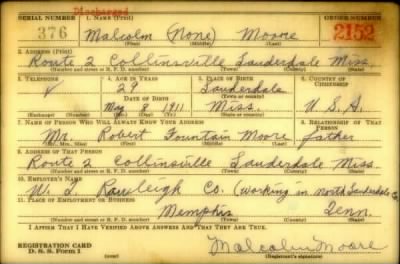 Discharged
SERIAL NUMBER 1. NAME (Print) ORDER NUMBER
376 Malcolm (None) Moore 2152
(First) (Middle) (Last)
2. ADDRESS (Print)
Route 2 Collinsville Lauderdale Miss.
(Number and street or R. F. D. number) (Town) (County) (State)
3. TELEPHONE 4. AGE IN YEARS 5. PLACE OF BIRTH 6. COUNTRY OF CITIZENSHIP
29 Lauderdale
DATE OF BIRTH (Town or county)
May 8 1911 Miss. U. S. A.
(Exchange) (Number) (Mo.) (Day) (Yr.) (State or country)
7. NAME OF PERSON WHO WILL ALWAYS KNOW YOUR ADDRESS 8. RELATIONSHIP OF THAT PERSON
Mr. Robert Fountain Moore father
(Mr., Mrs., Miss) (First) (Middle) (Last)
9. ADDRESS OF THAT PERSON
Route 2 Collinsville Lauderdale Miss.
(Number and street or R. F. D. number) (Town) (County) (State)
10. EMPLOYER'S NAME
W. T. Rawleigh Co. (working in North Lauderdale Co.
11. PLACE OF EMPLOYMENT OR BUSINESS
Memphis Tenn.
(Number and street or R. F. D. number) (Town) (County) (State)
I AFFIRM THAT I HAVE VERIFIED ABOVE ANSWERS AND THAT THEY ARE TRUE.
REGISTRATION CARD
D. S. S. Form 1 (over) Malcolm Moore
(Registrant's signature)